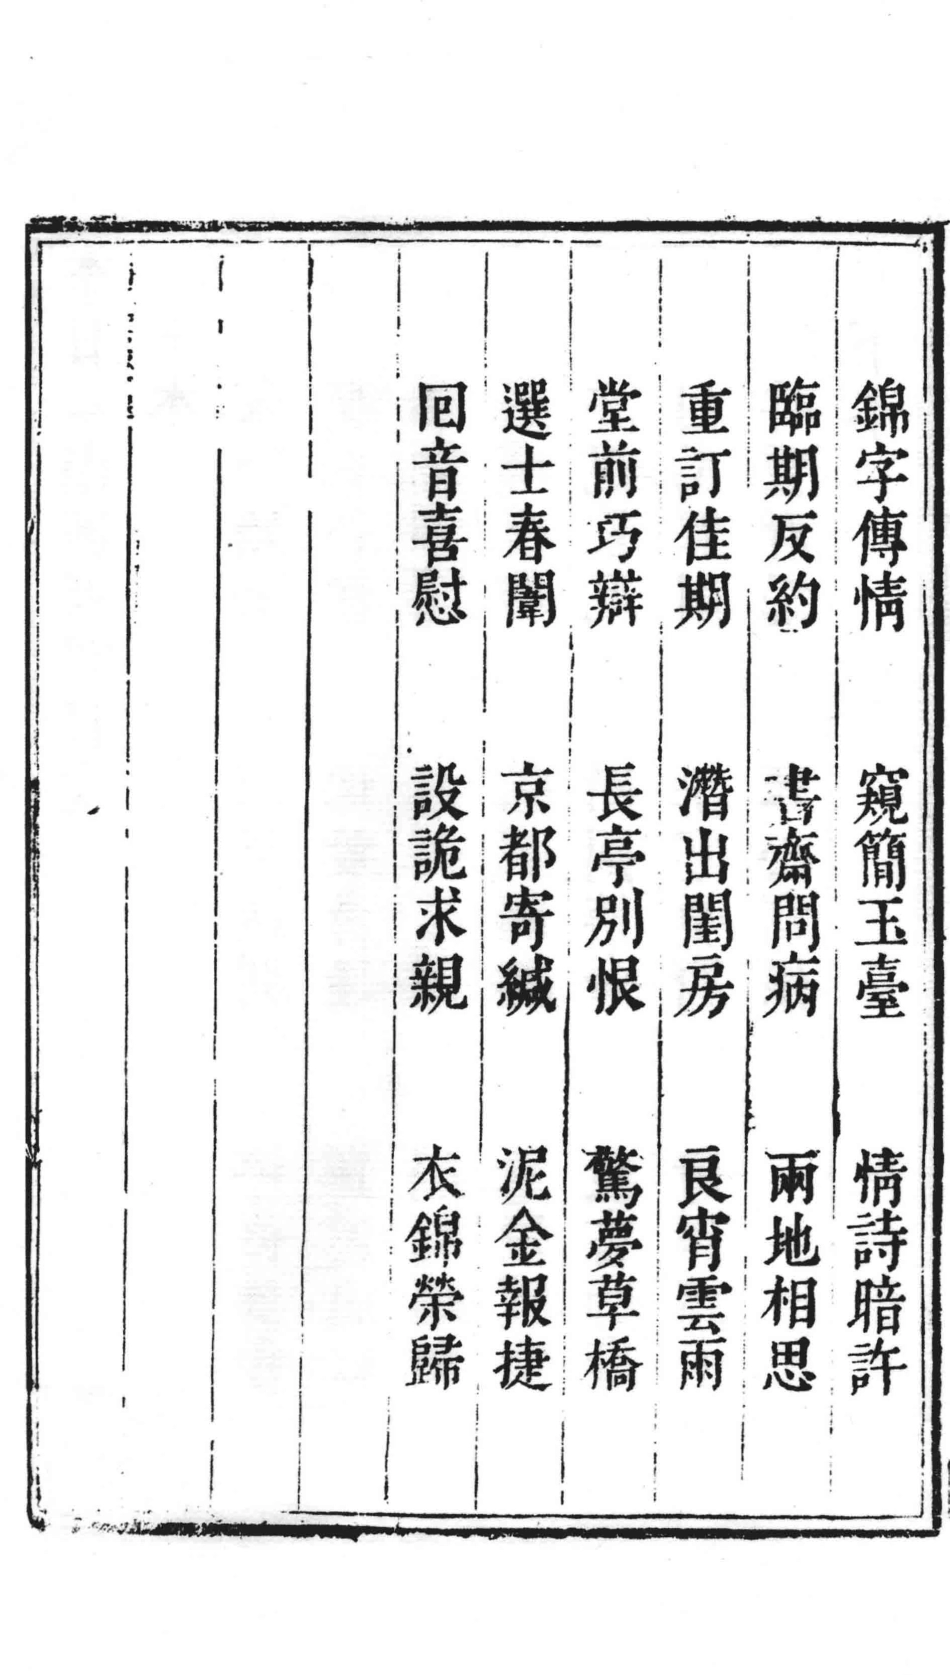 錦字傳情　窺簡玉臺　情詩暗許
臨期反約　書齋問病　兩地相思
重訂佳期　潛出閨房　良宵雲雨
堂前巧辯　長亭別恨　驚夢草橋
選士春闈　京都寄緘　泥金報捷
囘音喜慰　設詭求親　衣錦榮歸